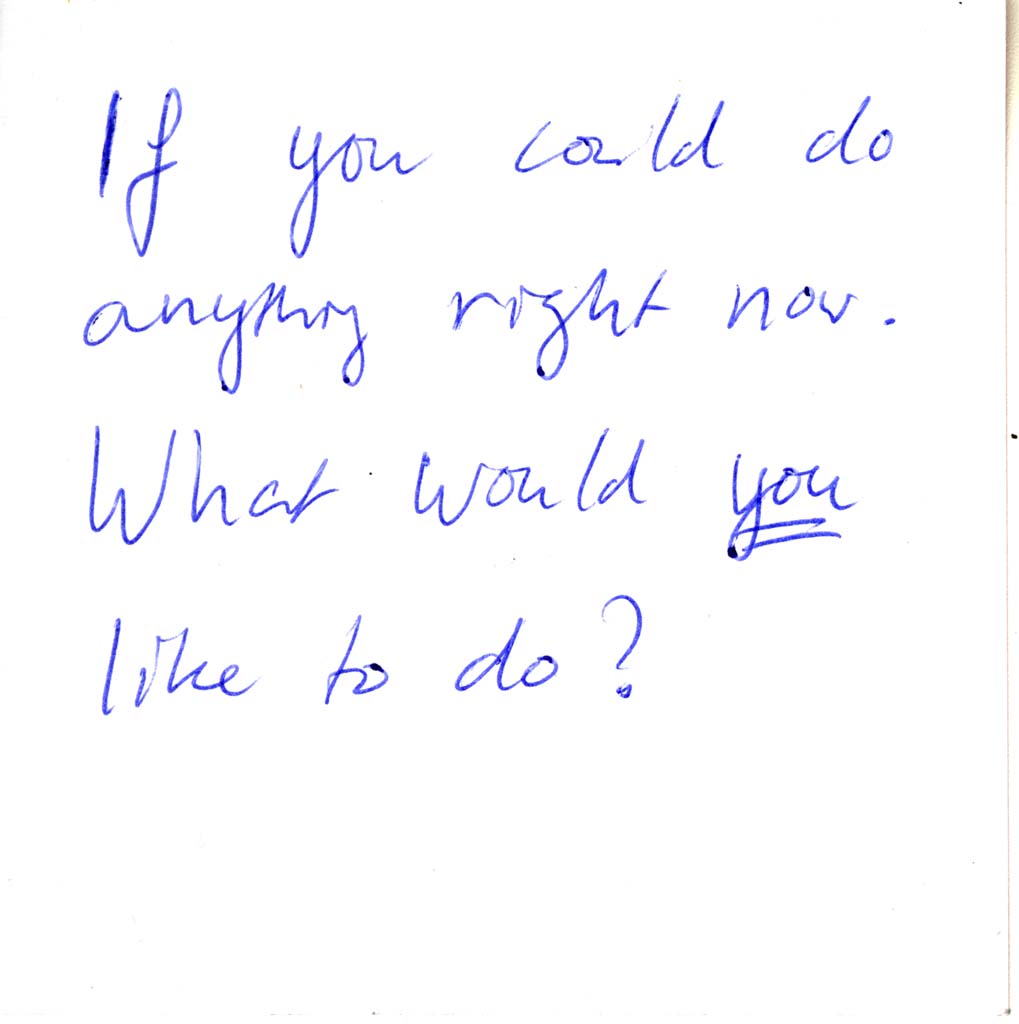 If you could do
anything right now.
What would you
like to do?